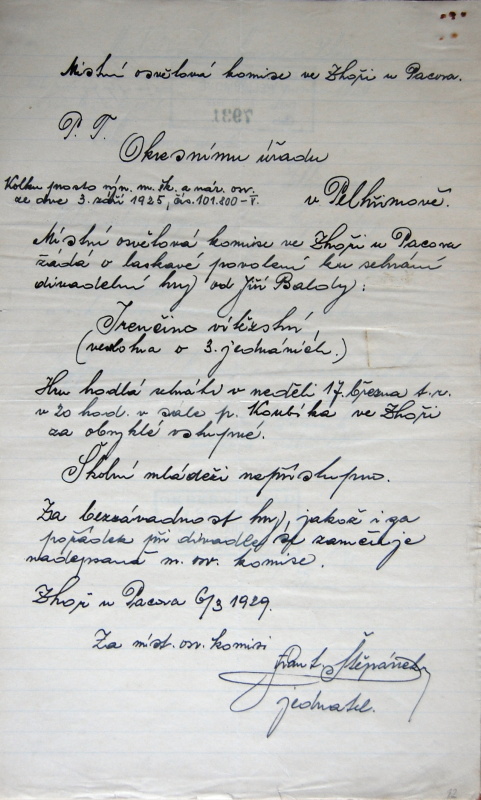 Místní osvětová komise ve Zhoři u Pacova.
7931
P. T.
Okresnímu úřadu
Kolku prosto výn. m. šk. a nár. osv.
ze dne 3. září 1925, čís. 101.800-V.
v Pelhřimově.
Místní osvětová komise ve Zhoři u Pacova
žádá o laskavé povolení ku sehrání
divadelní hry od Jiří Baldy:
Irenčino vítězství,
(veselohra o 3. jednáních.)
Hru hodlá sehráti v neděli 17. března t. r.
v 20 hod. v sále p. Koubíka ve Zhoři
za obvyklé vstupné.
Školní mládeži nepřístupno.
Za bezzávadnost hry, jakož i za
pořádek při divadle se zaměčuje
nadepsaná m. osv. komise.
Zhoř u Pacova 6/3 1929.
Za míst. osv. komisi
Frant. Štěpánek
jednatel.